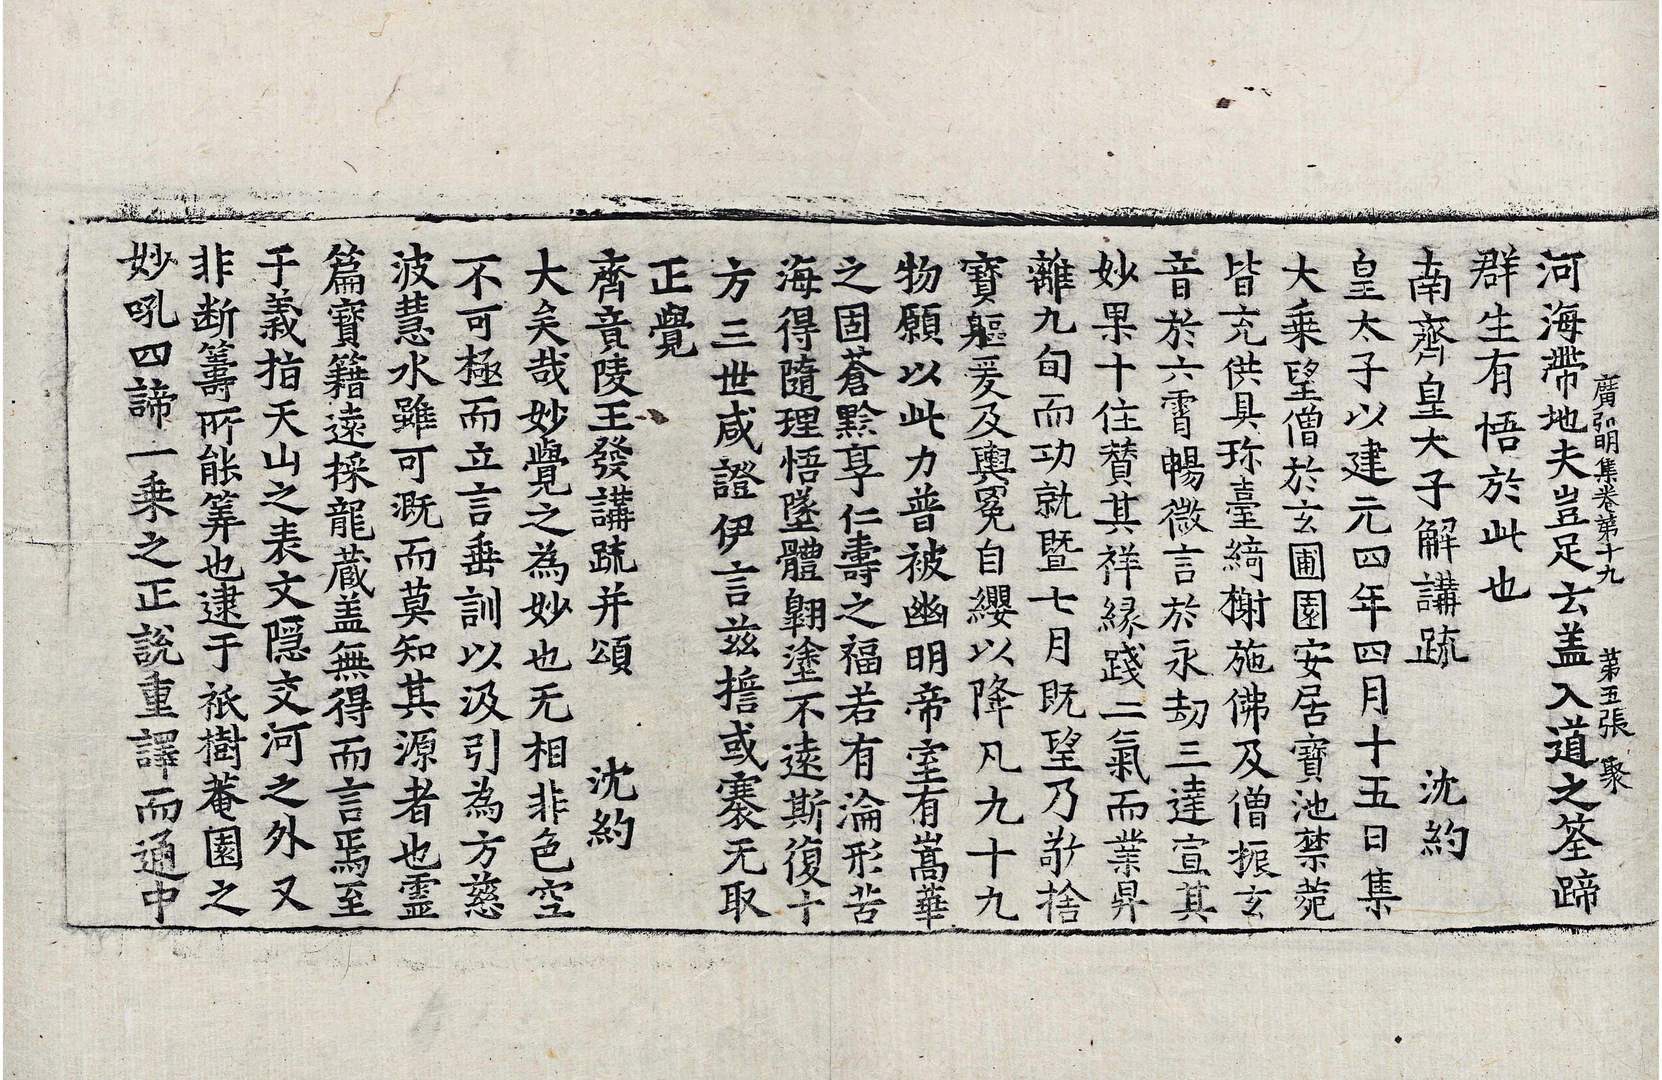 廣弘明集卷第十九　第五張　聚
河海帶地夫豈足云盖入道之筌蹄
群生有悟於此也
南齊皇太子解講疏　沈約
皇太子以建元四年四月十五日集
大乘望僧於玄圃園安居寶池禁苑
皆充供具珎臺綺榭施佛及僧振玄
音於六霄暢微言於永劫三達宣其
妙果十住賛其祥縁踐二氣而業昇
離九旬而功就暨七月既望乃敬捨
寶軀爰及輿冕自纓以降凡九十九
物願以此力普被幽明帝室有嵩華
之固蒼黔享仁壽之福若有淪形苦
海得隨理悟墜體翾塗不遠斯復十
方三世咸證伊言兹擔或褰无取
正覺
齊竟陵王發講䟽并頌　沈約
大矣哉妙覺之為妙也无相非色空
不可極而立言垂訓以汲引為方慈
波慧水雖可溉而莫知其源者也霊
篇寶籍遠採龍蔵盖無得而言焉至
于義指天山之表文隠交河之外又
非断籌所能筭也逮于祇樹菴園之
妙吼四諦一乘之正說重譯而通中